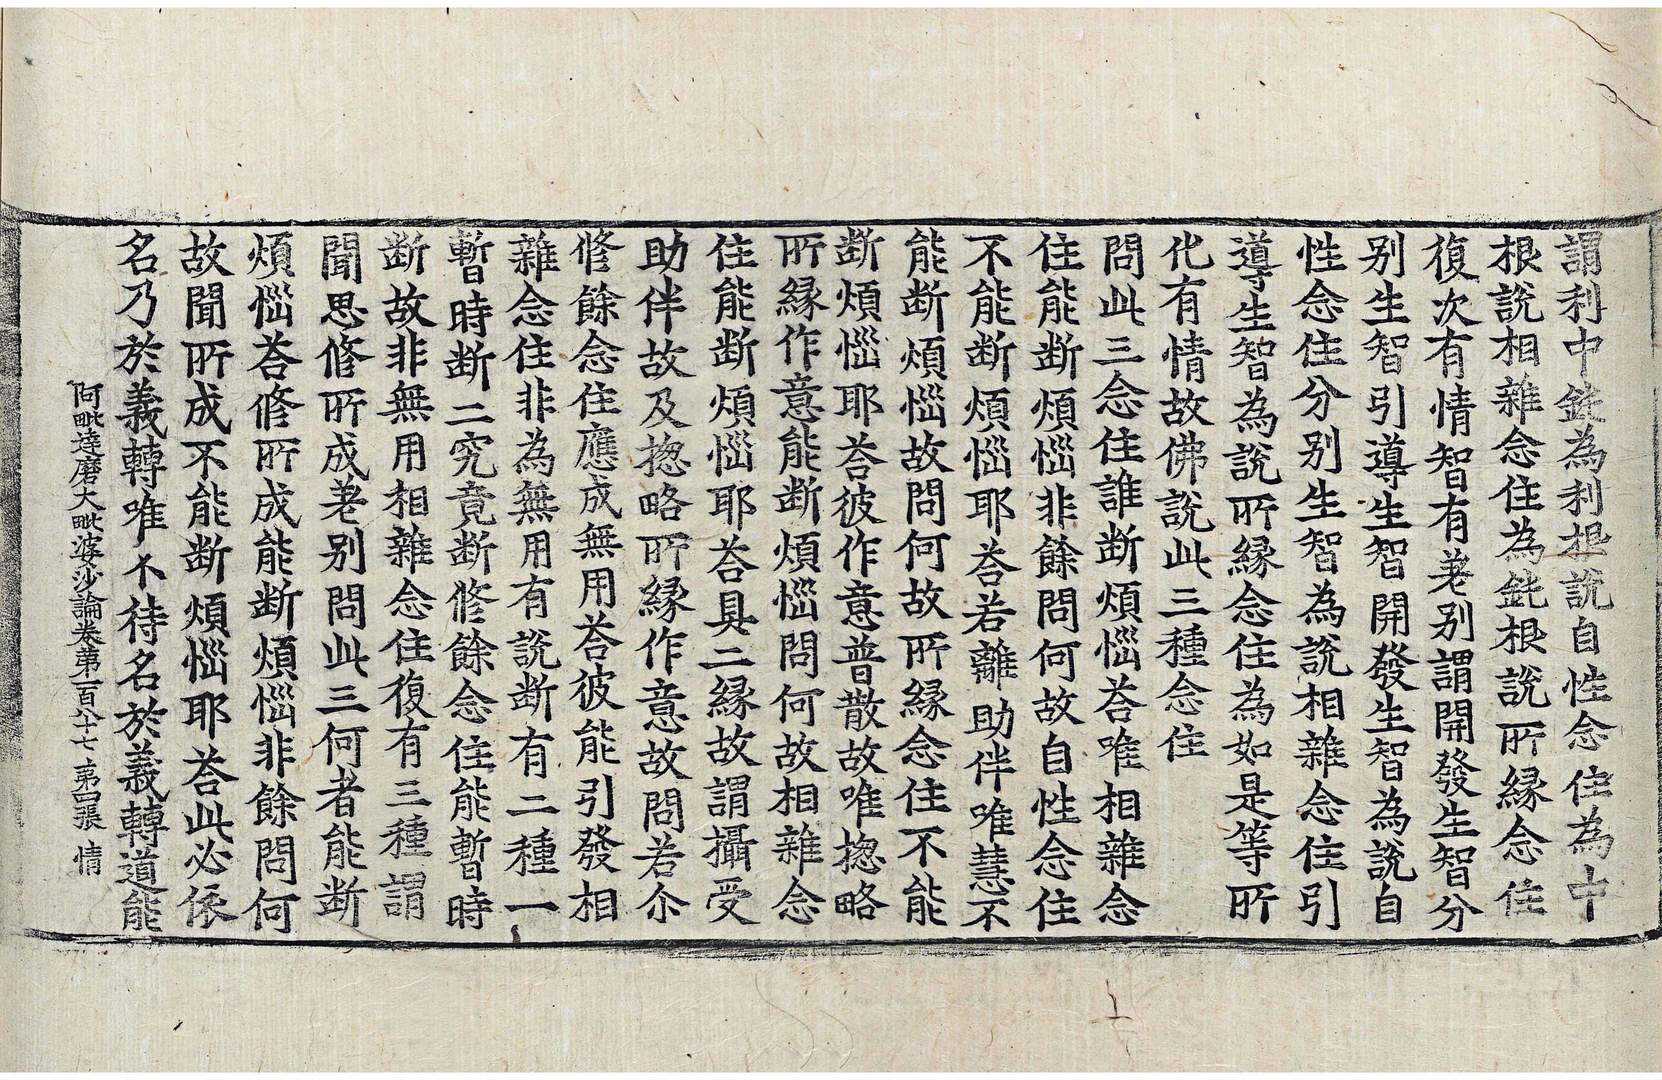 謂利中鈍為利根說自性念住為中
根說相雜念住為鈍根說所緣念住
復次有情智有差别謂開發生智分
别生智引導生智開發生智為說自
性念住分别生智為說相雜念住引
導生智為說所緣念住為如是等所
化有情故佛說此三種念住
問此三念住誰斷煩惱荅唯相雜念
住能斷煩惱非餘問何故自性念住
不能斷煩惱耶荅若離助伴唯慧不
能斷煩惱故問何故所緣念住不能
斷煩惱耶荅彼作意普散故唯揔略
所緣作意能斷煩惱問何故相雜念
住能斷煩惱耶荅具二緣故謂攝受
助伴故及揔略所緣作意故問若尒
修餘念住應成無用荅彼能引發相
雜念住非為無用有說斷有二種一
暫時斷二究竟斷修餘念住能暫時
斷故非無用相雜念住復有三種謂
聞思修所成差别問此三何者能斷
煩惱荅修所成能斷煩惱非餘問何
故聞所成不能斷煩惱耶荅此必依
名乃於義轉唯不待名於義轉道能
阿毗達磨大毗婆沙論卷第一百八十七 第四張 情